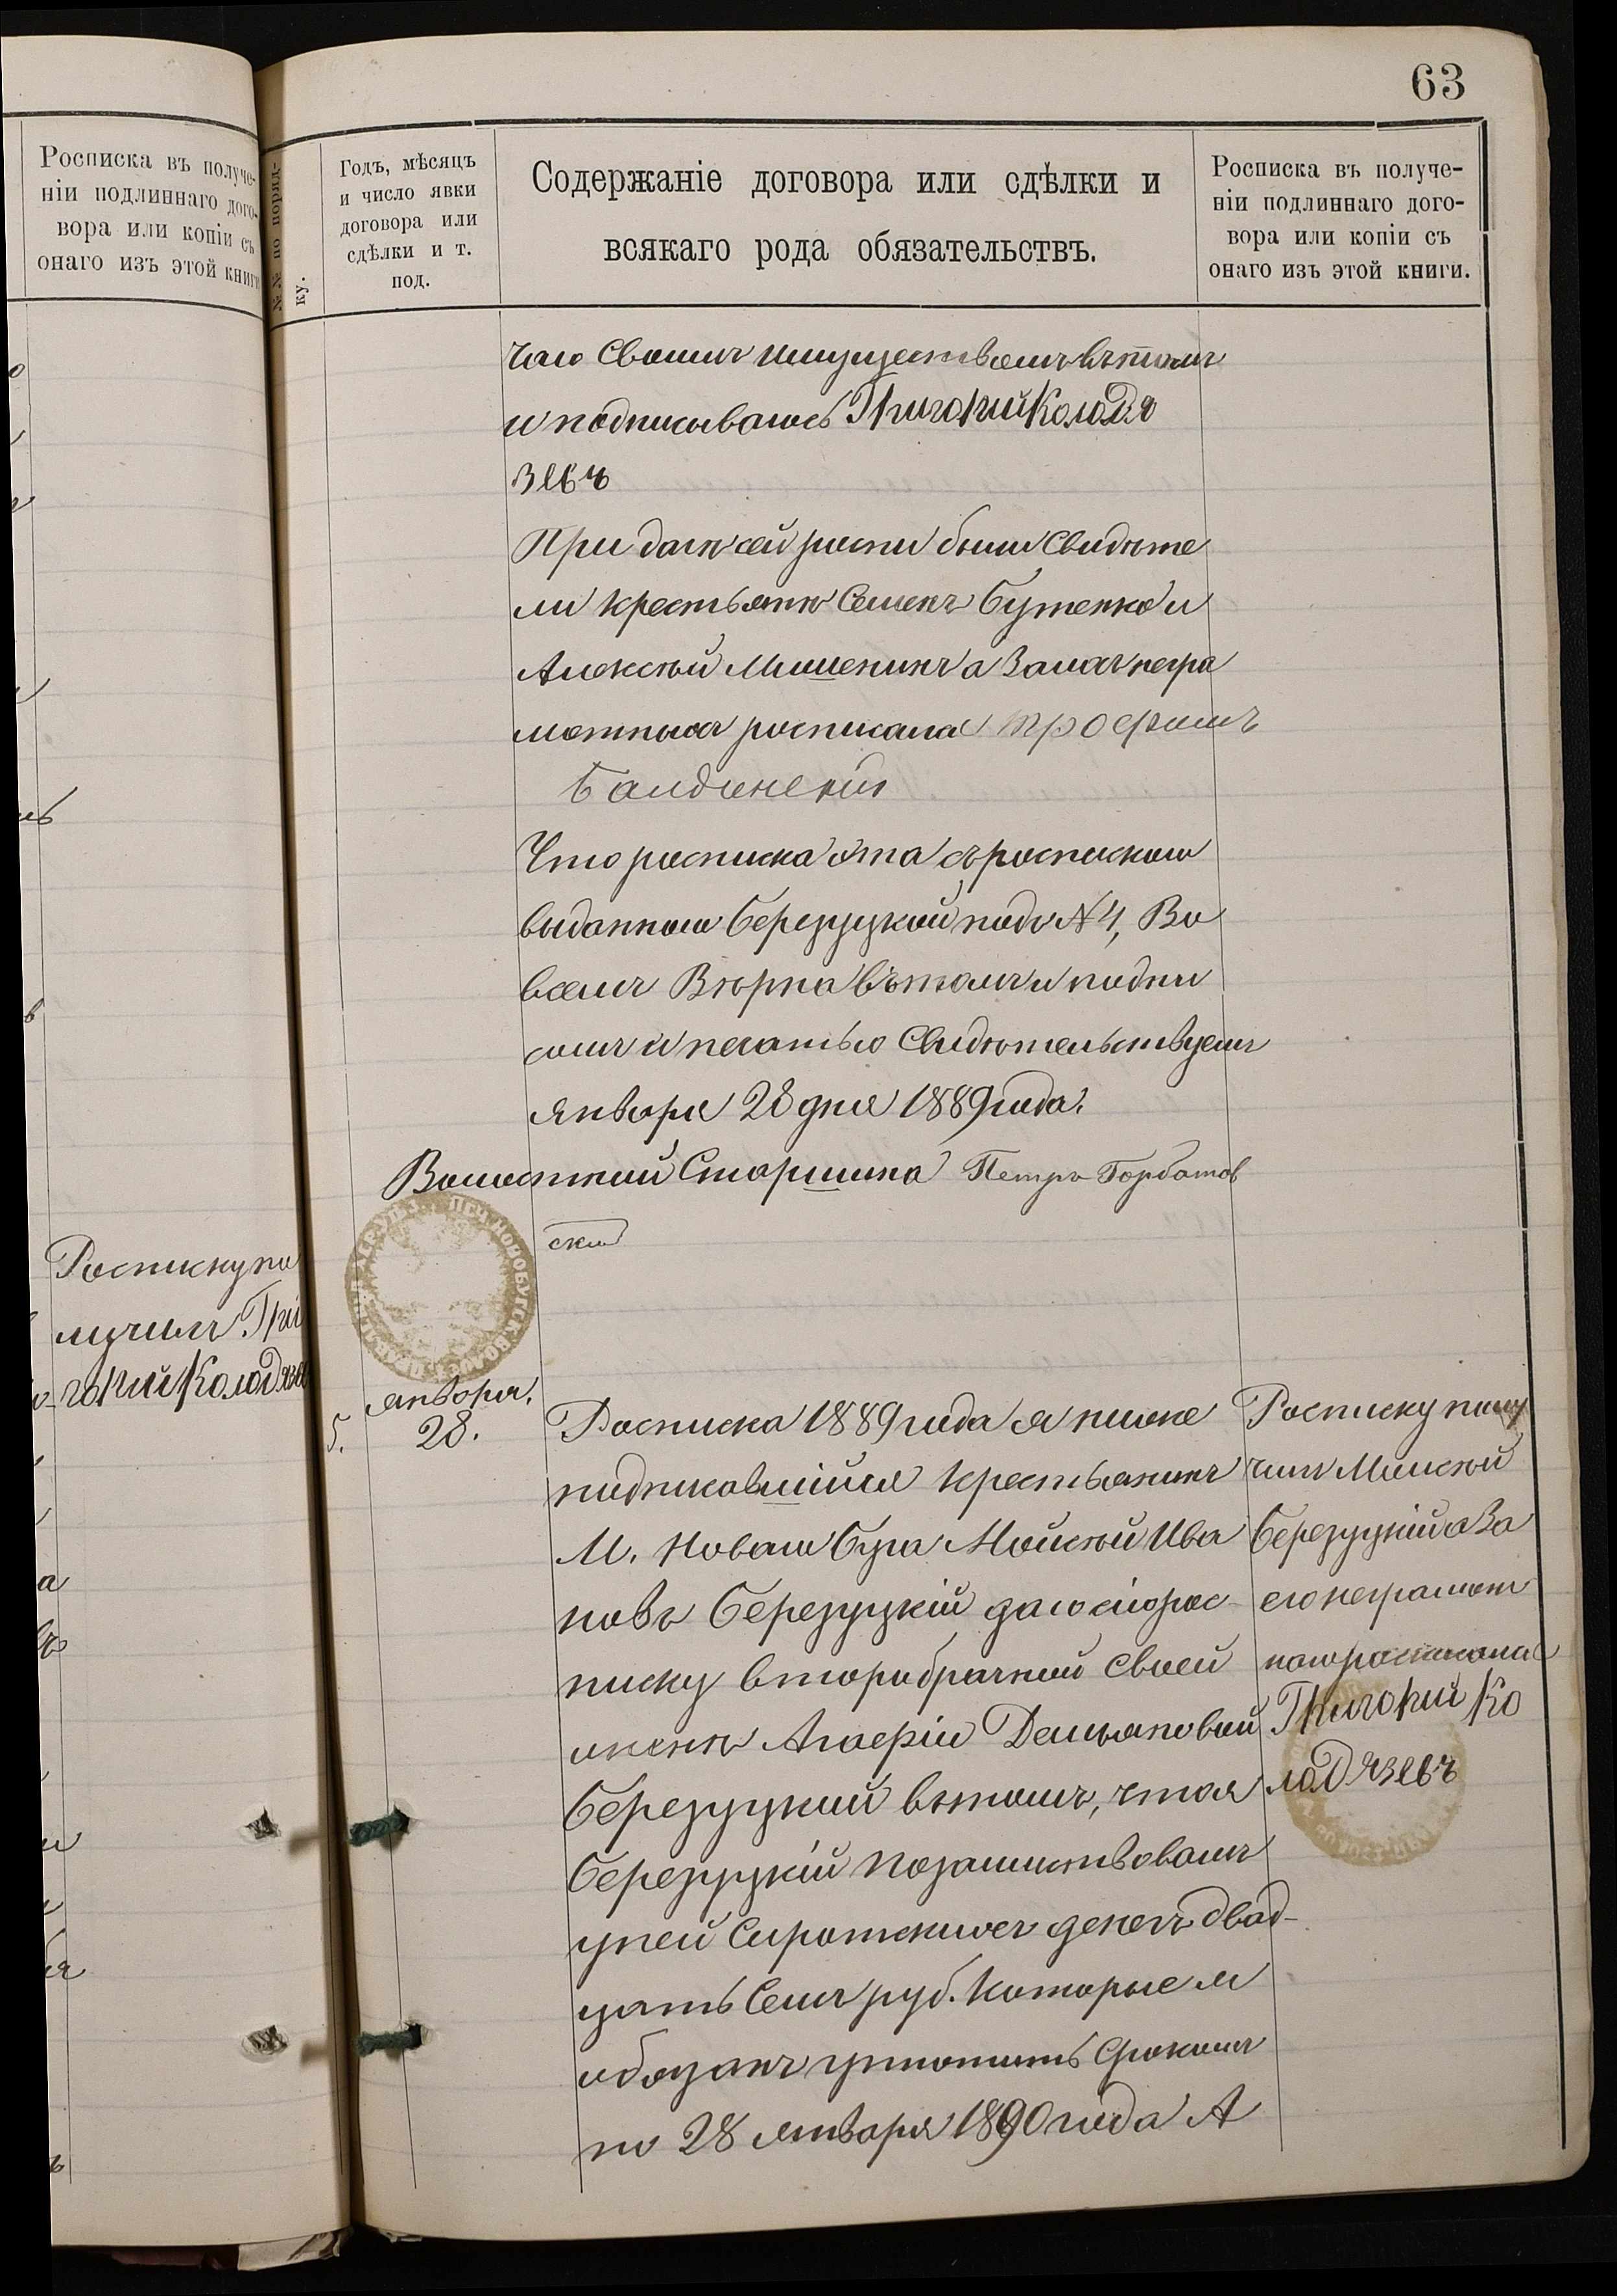 63
Росписка въ получе-
ніи подлиннаго дого-
вора или копіи съ
онаго изъ этой книги
Росписку по
лучилъ Гри
горий Колодязев
№№ по поряд-
ку.
Годъ, мѣсяцъ
и число явки
договора или
сдѣлки и т.
под.
Содержаніе договора или сдѣлки и
всякаго рода обязательствъ.
Росписка въ получе-
ніи подлиннаго дого-
вора или копіи съ
онаго изъ этой книги.
чаю своимъ имуществомъ вътомъ
и подписываюсь Григорий Колодя
зевъ
При дачи сей роспи были свидѣте
ли крестьяне Семенъ Бутенко и
Алексѣй Мишенинъ а за нихъ негра
мотныхъ росписался Трофимъ
Балдинский
Что росписка эта съ роспискою
выданною Березуцкой подъ № 4, Во
всемъ Вѣрна въ томъ и подпи
сомъ и печатью свидѣтельствуемъ
января 28 дня 1889 года.
Волостной Старшина Петръ Горбатов
ский
5.
января.
28.
Росписка 1889 года я ниже
подписавшійся крестьянинъ
М. Новаго Буга Мойсѣй Ива
новъ Березуцкій даю сію рос
писку второбрачной своей
женѣ Агафіи Демьяновой
Березуцкий вътомъ, что я
Березуцкій позаимствовалъ
уней Сиротскихъ денегъ двад-
цать Семъ руб. Которые я
обязанъ уплотить срокомъ
по 28 января 1890 года А
Росписку полу
чилъ Моисѣй
Березуцкій а за
его неграмот
наго росписался
Григорий Ко
лодязевъ